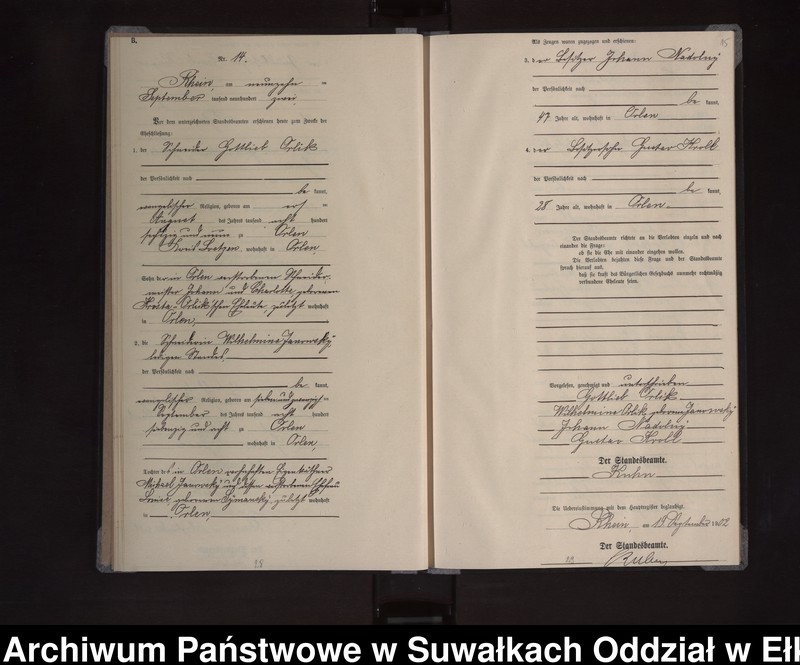 B.
Nr. 14.
Rhein, am neunzehn ten
September tausend neunhundert zwei
Vor dem unterzeichneten Standesbeamten erschienen heute zum Zwecke der
Eheschließung:
1. der Schneider Gottlieb Orlik
der Persönlichkeit nach
be kannt,
evangelischer Religion, geboren am
August des Jahres tausend acht hundert
sechzig und neun zu Orlen
Kreis Loetzen, wohnhaft in Orlen,
Sohn der in Orlen verstorbenen Schneider-
meister Johann und Charlotte geborenen
Orlik'schen Eheleute, zuletzt wohnhaft
in Orlen,
2. die Schneiderin Wilhelmine Janowsky,
ledigen Standes
der Persönlichkeit nach
be kannt,
evangelischer Religion, geboren am sieben und zwanzig ten
September des Jahres tausend acht hundert
siebenzig und acht zu Orlen
wohnhaft in Orlen,
Tochter des in Orlen
Michael Janowsky und dessen verstorbenen Ehefrau
Louise geborenen Szimansky, zuletzt wohnhaft
in Orlen,
28
Als Zeugen waren zugezogen und erschienen:
3. der Besitzer Johann Nadolny
der Persönlichkeit nach
be kannt,
47 Jahre alt, wohnhaft in Orlen
4. der Besitzersohn Gustav Kroll
der Persönlichkeit nach
be kannt,
28 Jahre alt, wohnhaft in Orlen,
Der Standesbeamte richtete an die Verlobten einzeln und nach
einander die Frage:
ob sie die Ehe mit einander eingehen wollen.
Die Verlobten bejahten diese Frage und der Standesbeamte
sprach hierauf aus,
daß sie kraft des Bürgerlichen Gesetzbuchs nunmehr rechtmäßig
verbundene Eheleute seien.
Vorgelesen, genehmigt und unterschrieben
Gottlieb Orlik
Wilhelmine Orlik geborene Janowsky
Johann Nadolny
Gustav Kroll
Der Standesbeamte.
Kuhn
Die Uebereinstimmung mit dem Hauptregister beglaubigt.
Rhein, am 19. September 1902
Der Standesbeamte.
Archiwum Państwowe w Suwałkach Oddział w Ełk